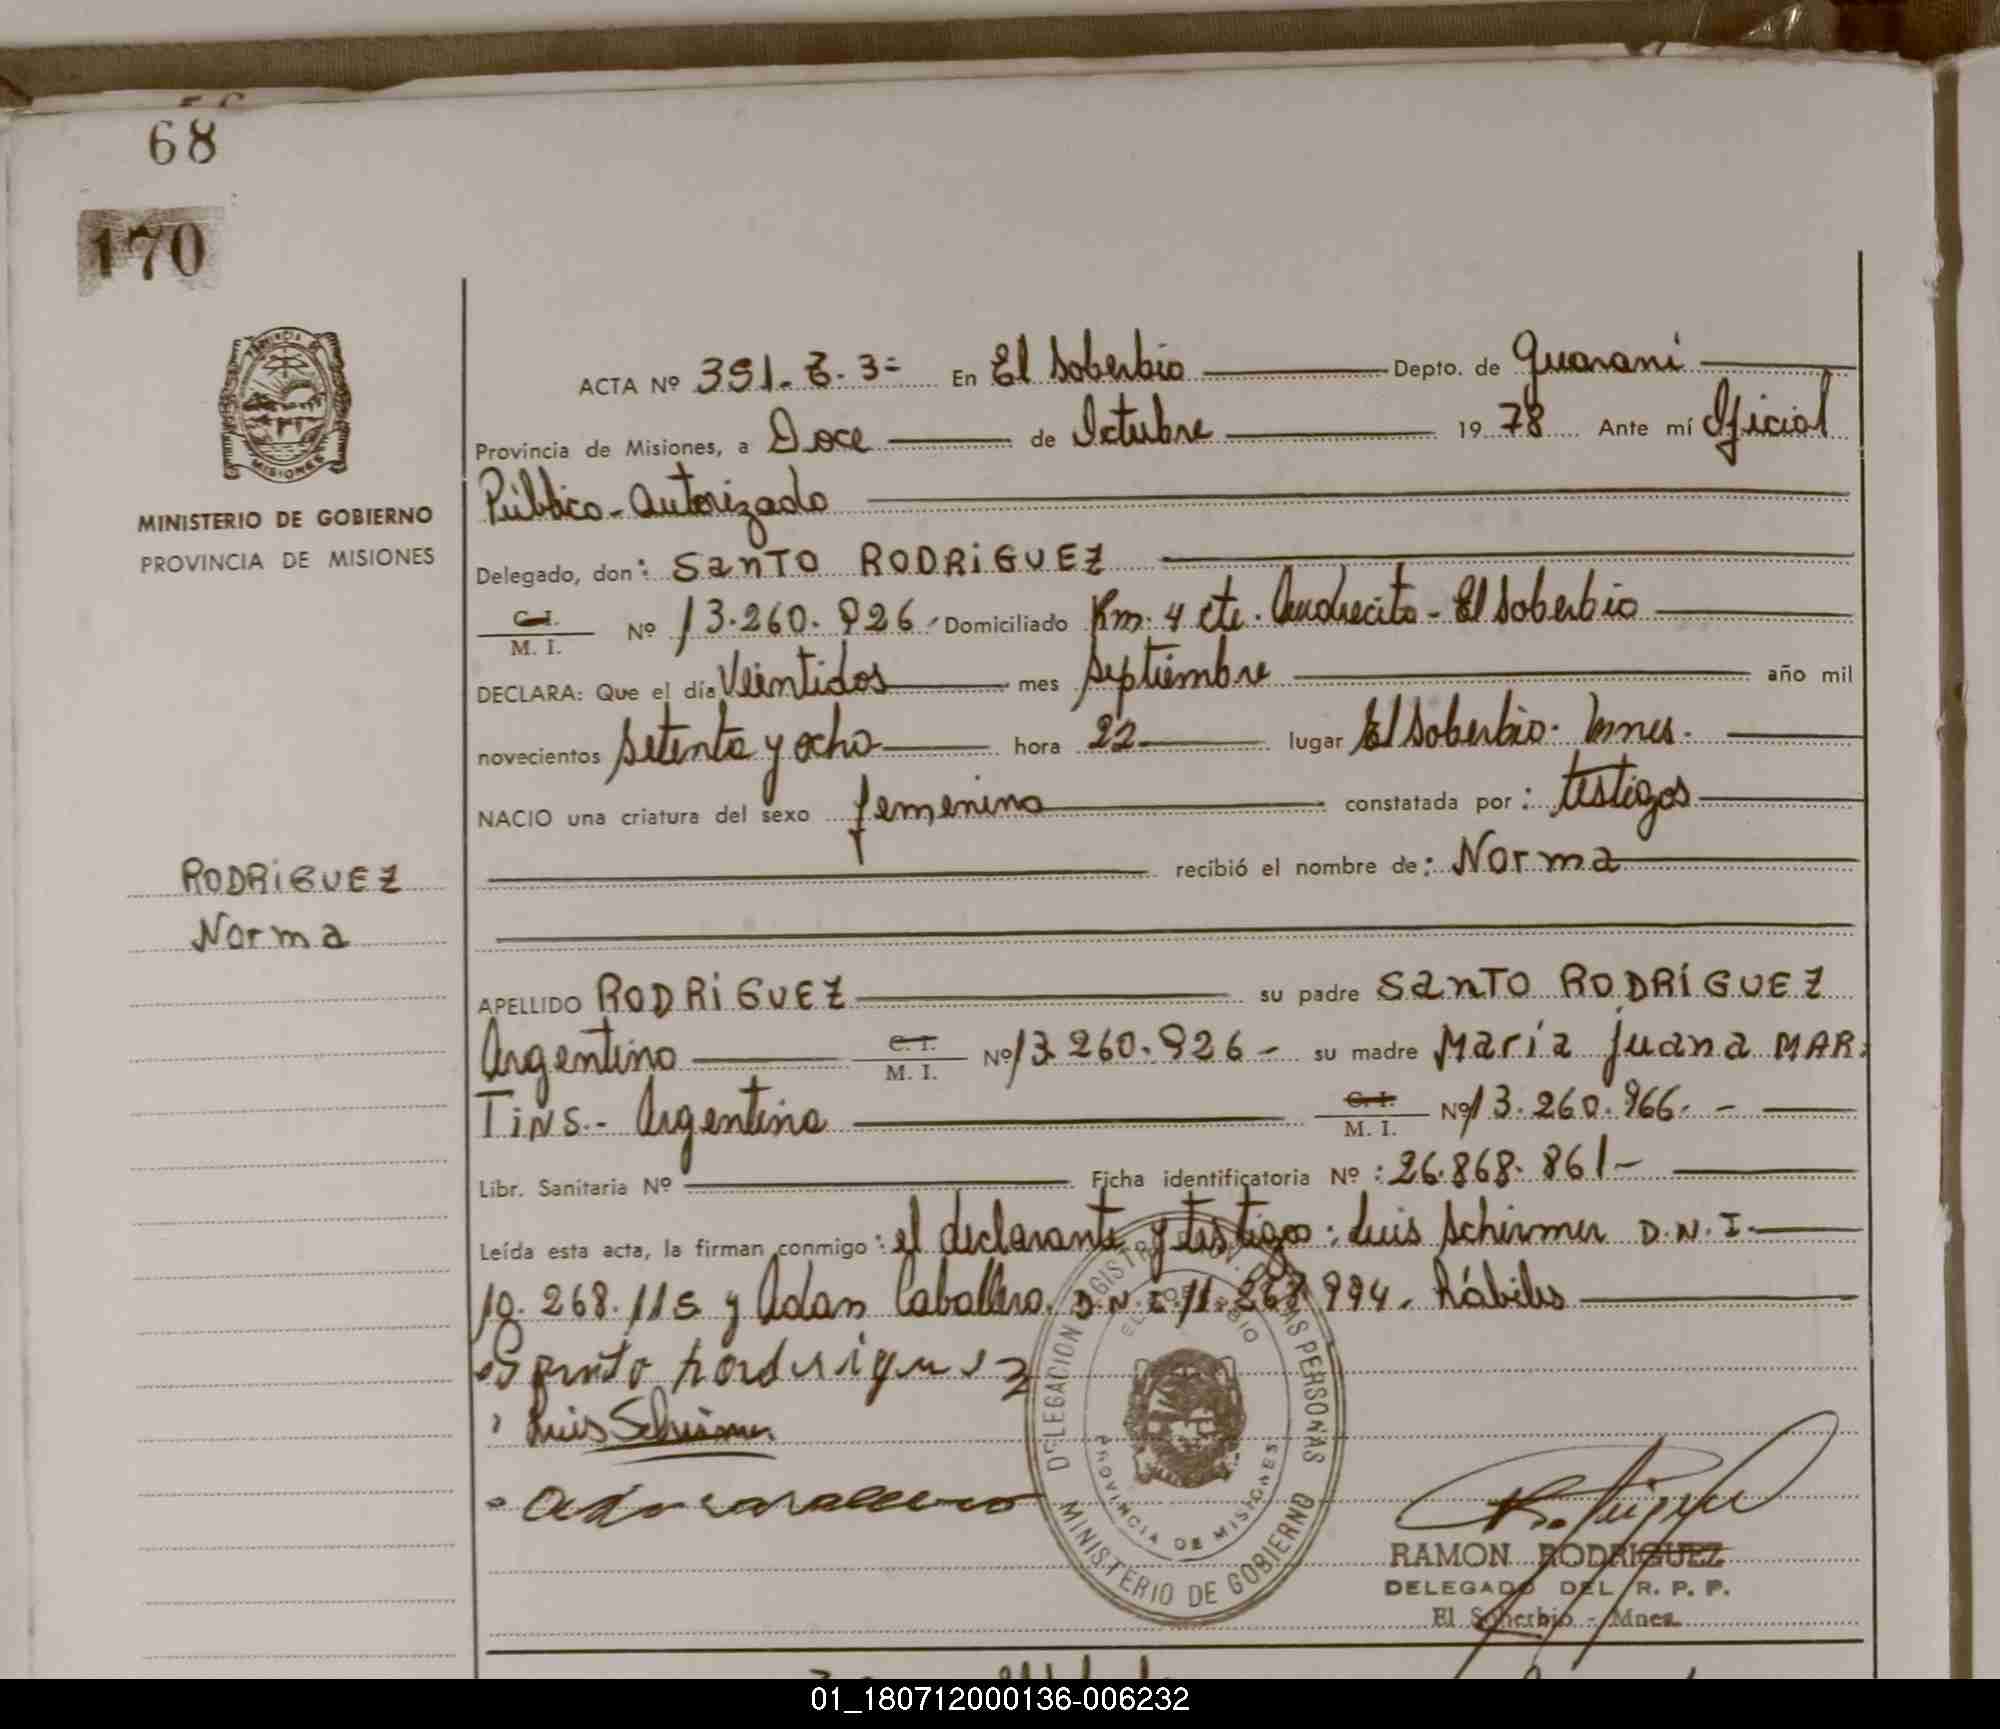 68
170
PROVINCIA DE
MISIONES
MINISTERIO DE GOBIERNO
PROVINCIA DE MISIONES
RODRiGUEZ
Norma
ACTA Nº 391. T. 3= En El Soberbio Depto. de Guaraní
Provincia de Misiones, a Doce de Octubre 19 78 Ante mí Oficial
Público - Autorizado
Delegado, don: SanTO RODRiGUEZ
C. I.
M. I. Nº 13.260.926 Domiciliado Km: 4 cte. Andrecito - El Soberbio
DECLARA: Que el día Veintidos mes Septiembre año mil
novecientos Setenta y ocho hora 22 lugar El Soberbio - Mnes.
NACIO una criatura del sexo femenino constatada por: testigos
recibió el nombre de: Norma
APELLIDO RODRiGUEZ su padre SanTO RODRÍGUEZ
Argentino C. I. M. I. Nº 13.260.926 - su madre María Juana MAR-
TiNS.- Argentina C. I. M. I. Nº 13.260.966. -
Libr. Sanitaria Nº Ficha identificatoria Nº: 26.868.861 -
Leída esta acta, la firman conmigo: el declarante y testigos: Luis Schirmer D.N.I.
10.268.115 y Adan Caballero. D.N.I. 11.268.994. Hábiles
Santo Rodriguez
Luis Schirmer
DELEGACION REGISTRO PERSONAS
EL SOBERBIO
PROVINCIA DE MISIONES
MINISTERIO DE GOBIERNO
RAMON RODRIGUEZ
DELEGADO DEL R. P. P.
El Soberbio - Mnes.
01_180712000136-006232